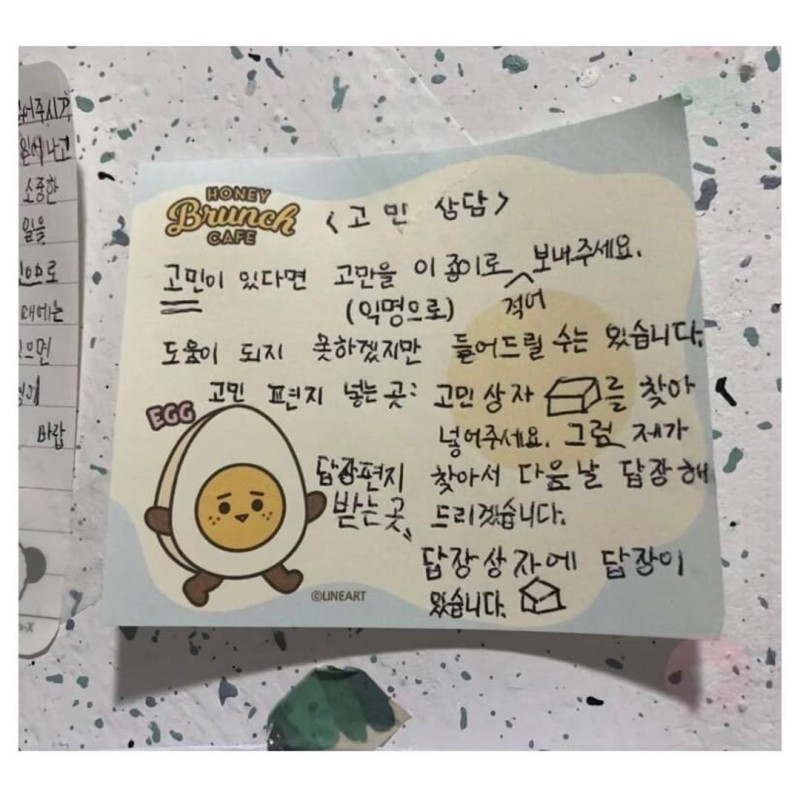 HONEY
Brunch
CAFE
<고민 상담>
고민이 있다면 고민을 이 종이로 적어 보내주세요.
(익명으로)
도움이 되지 못하겠지만 들어드릴 수는 있습니다.
고민 편지 넣는 곳: 고민상자 를 찾아
넣어주세요. 그럼 제가
찾아서 다음날 답장해
드리겠습니다.
EGG
답장편지
받는곳
답장상자에 답장이
있습니다.
©LINEART
소중한
일을
으로
때에는
으면
바랍